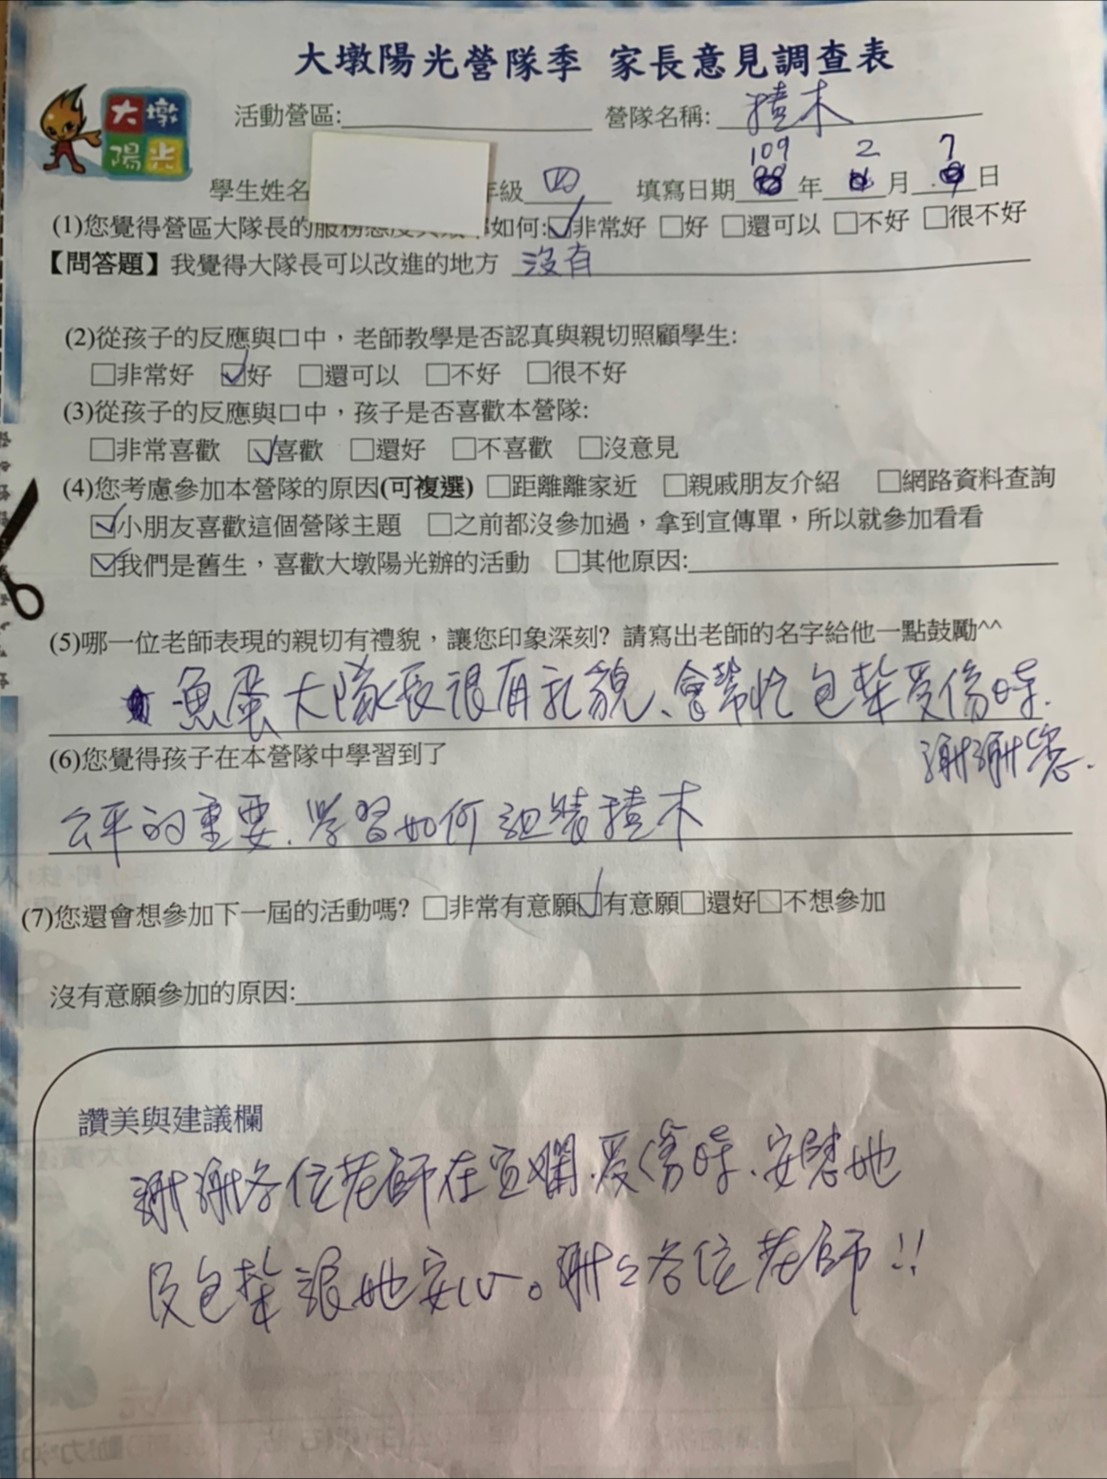 大墩陽光營隊季 家長意見調查表
大墩
陽光
活動營區: 營隊名稱: 積木
109 2 7
學生姓名 年級 四 填寫日期 年 月 日
(1)您覺得營區大隊長的服務態度 如何:☑非常好 □好 □還可以 □不好 □很不好
【問答題】我覺得大隊長可以改進的地方 沒有
(2)從孩子的反應與口中，老師教學是否認真與親切照顧學生:
□非常好 ☑好 □還可以 □不好 □很不好
(3)從孩子的反應與口中，孩子是否喜歡本營隊:
□非常喜歡 ☑喜歡 □還好 □不喜歡 □沒意見
(4)您考慮參加本營隊的原因(可複選) □距離離家近 □親戚朋友介紹 □網路資料查詢
☑小朋友喜歡這個營隊主題 □之前都沒參加過，拿到宣傳單，所以就參加看看
☑我們是舊生，喜歡大墩陽光辦的活動 □其他原因:
(5)哪一位老師表現的親切有禮貌，讓您印象深刻? 請寫出老師的名字給他一點鼓勵^^
魚蛋大隊長很有礼貌、會幫忙包紮受傷時.
謝謝您.
(6)您覺得孩子在本營隊中學習到了
公平的重要.學習如何組裝積木
(7)您還會想參加下一屆的活動嗎? □非常有意願☑有意願□還好□不想參加
沒有意願參加的原因:
讚美與建議欄
謝謝各位老師在宜嫻.受傷時.安慰她
及包紮讓她安心。謝々各位老師!!